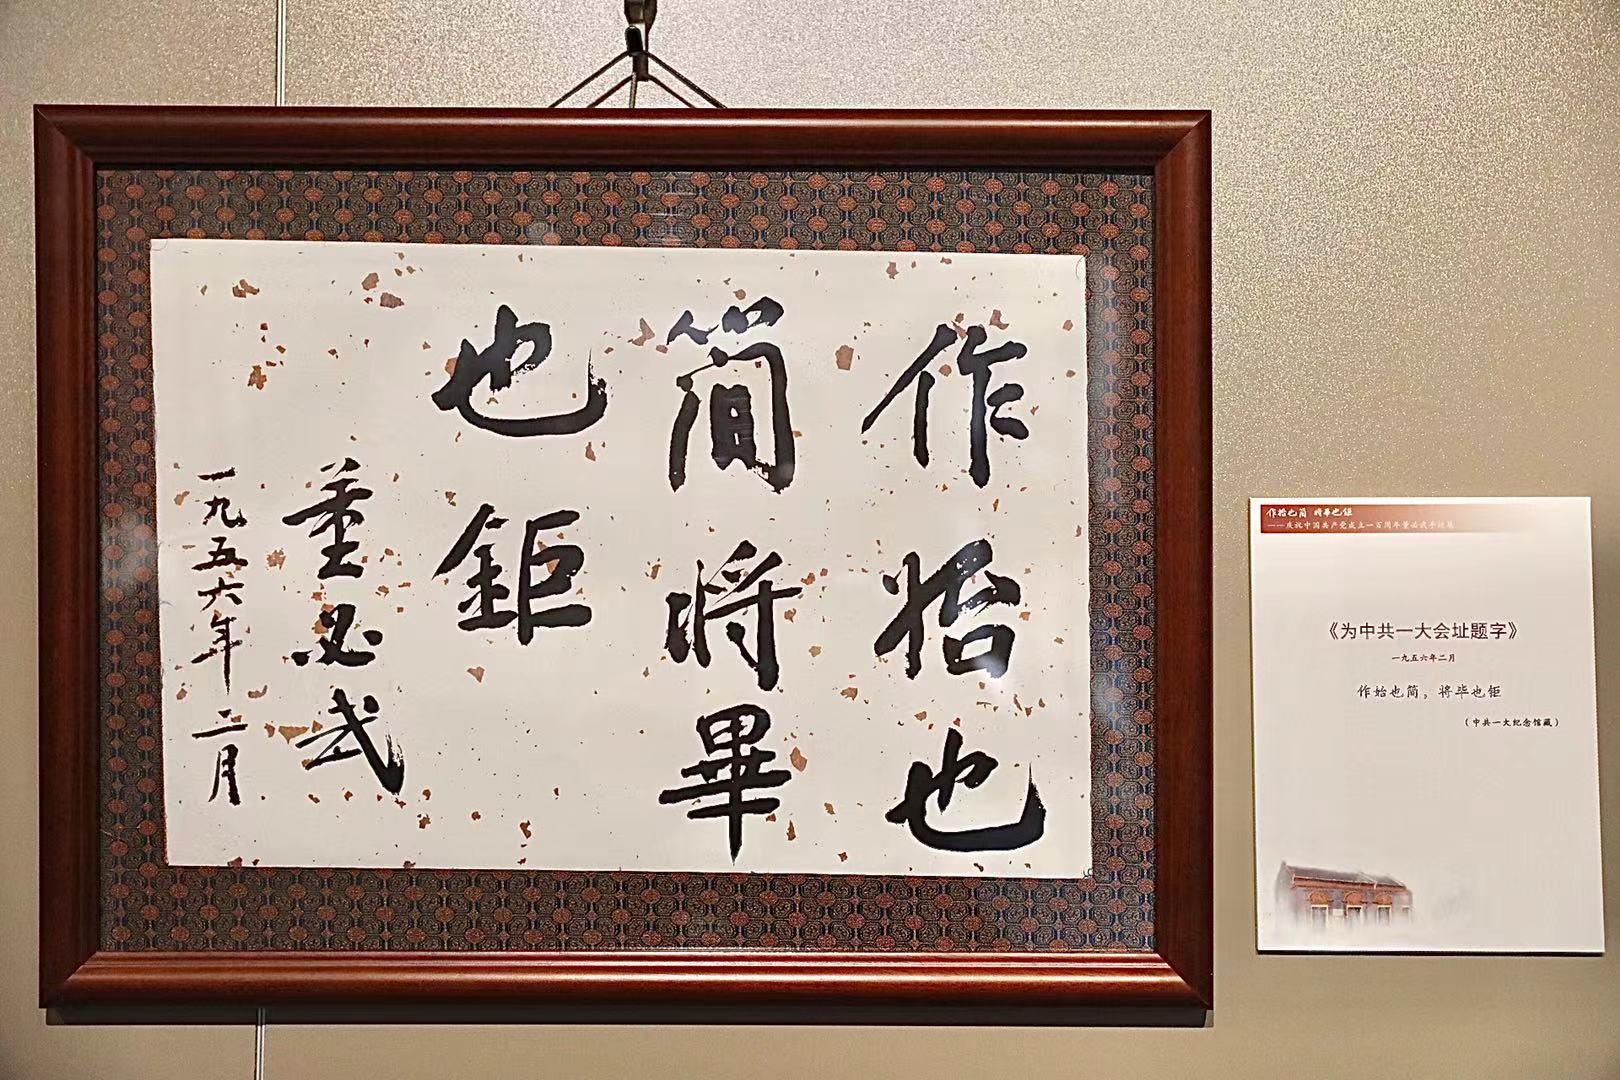 作始也
简將畢
也鉅
董必武
一九五六年二月
作始也简 将毕也钜
——庆祝中国共产党成立一百周年董必武手迹展
《为中共一大会址题字》
一九五六年二月
作始也简，将毕也钜
（中共一大纪念馆藏）